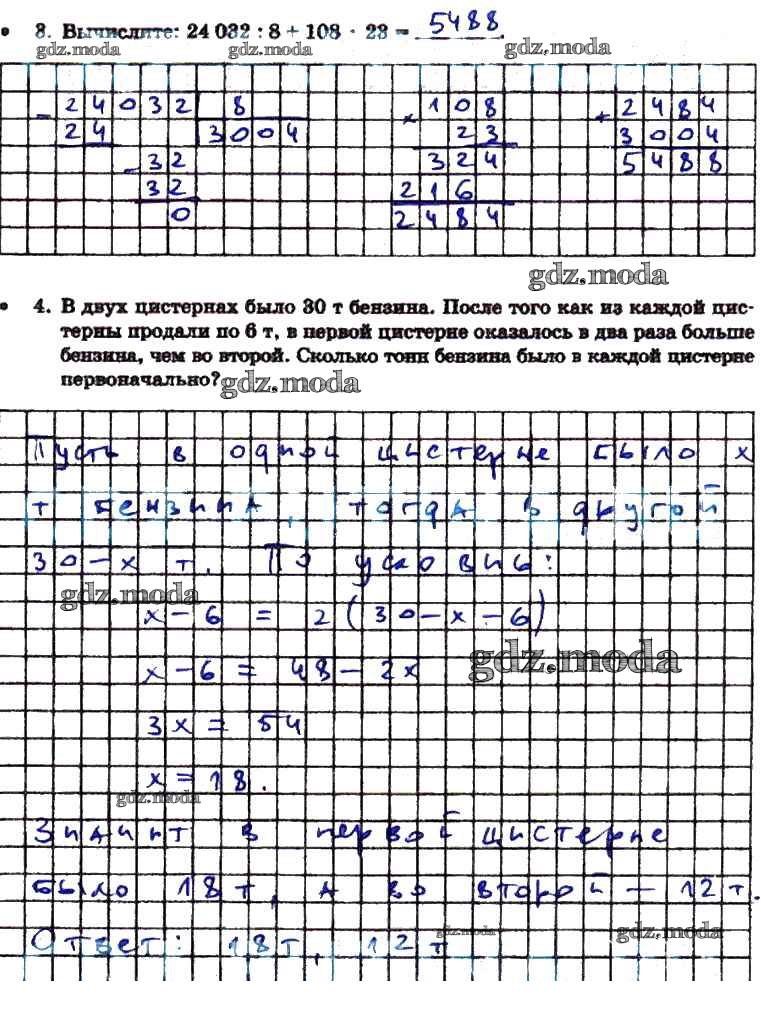 3. Вычислите: 24 032 : 8 + 108 · 23 = 5488.
gdz.moda gdz.moda gdz.moda
- 24032 8 × 108 + 2484
24 3004 23 3004
- 32 324 5488
32 216
0 2484
gdz.moda
4. В двух цистернах было 30 т бензина. После того как из каждой цис-
терны продали по 6 т, в первой цистерне оказалось в два раза больше
бензина, чем во второй. Сколько тонн бензина было в каждой цистерне
первоначально? gdz.moda
Пусть в одной цистерне было x
т бензина, тогда в другой
30-x т. По условию:
gdz.moda
x-6 = 2(30-x-6)
x-6 = 48-2x gdz.moda
3x = 54
x = 18.
gdz.moda
Значит в первой цистерне
было 18 т, а во второй — 12 т.
gdz.moda gdz.moda
Ответ: 18 т, 12 т